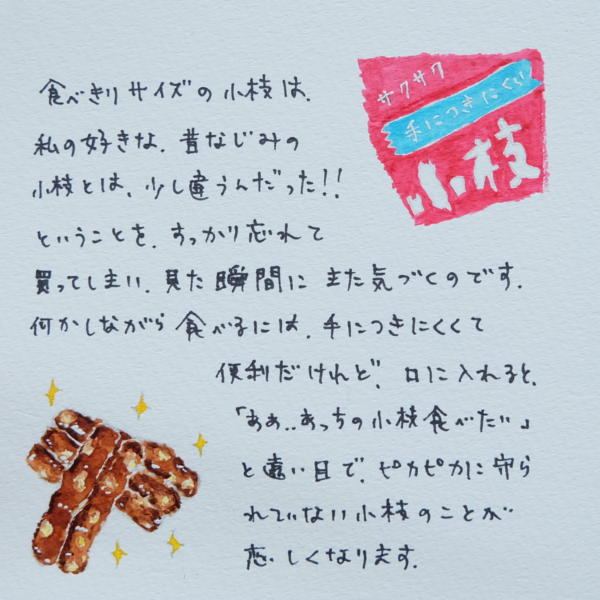 サクサク
手につきにくい
小枝
食べきりサイズの小枝は、
私の好きな、昔なじみの
小枝とは、少し違うんだった!!
ということを、すっかり忘れて
買ってしまい、見た瞬間にまた気づくのです。
何かしながら食べるには、手につきにくくて
便利だけれど、口に入れると、
「ああ..あっちの小枝食べたい」
と遠い目で、ピカピカに守ら
れていない小枝のことが
恋しくなります。